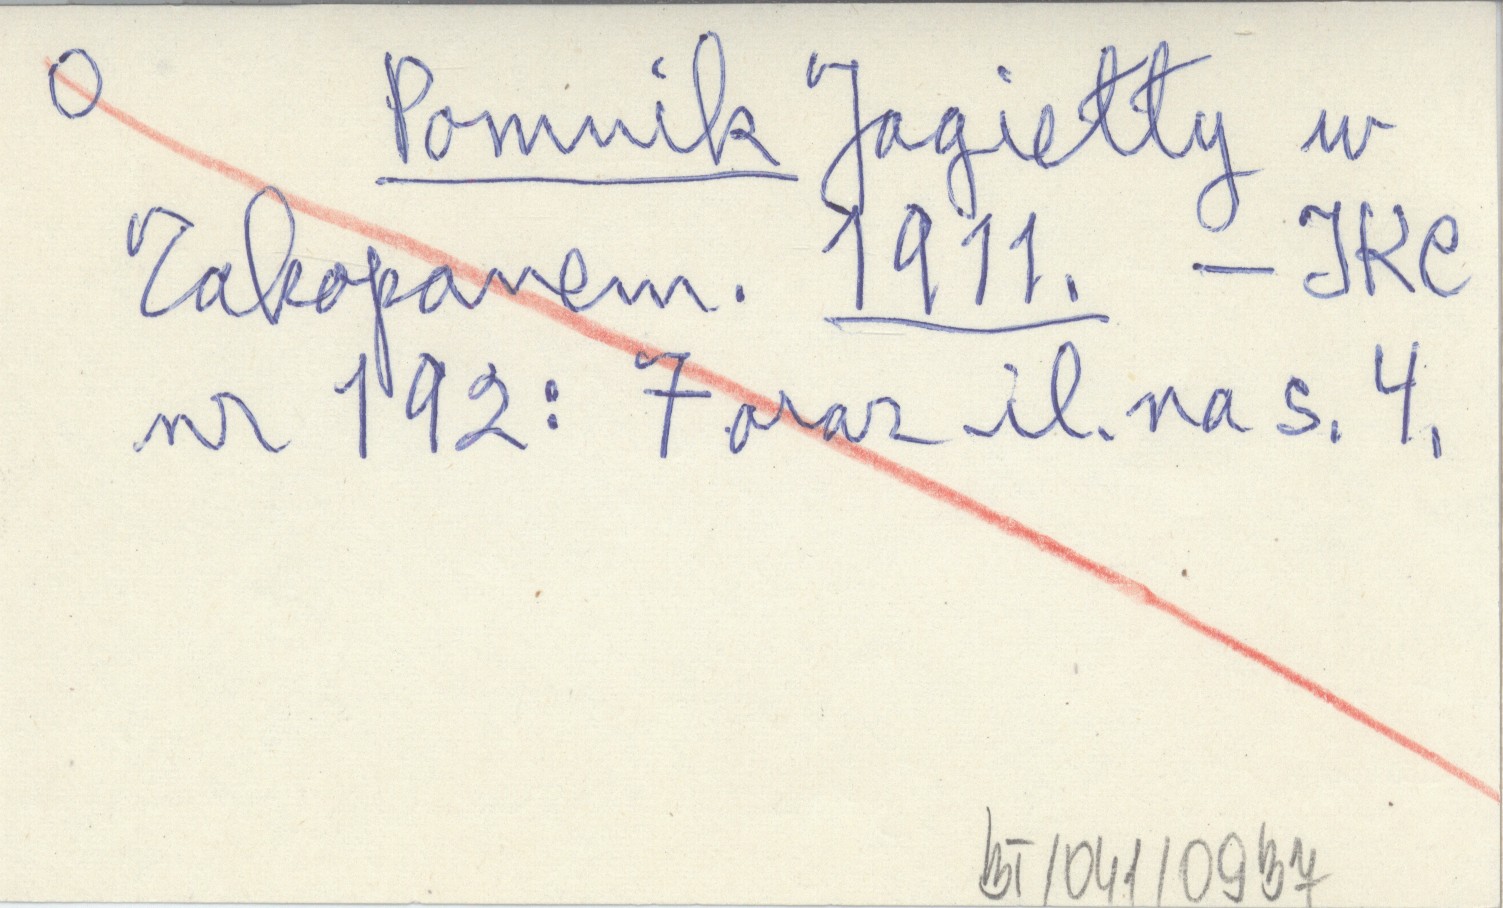 O Pomnik Jagiełły w
Zakopanem. 1911. – IKC
nr 192: 7 oraz il. na s. 4.
/041/0937